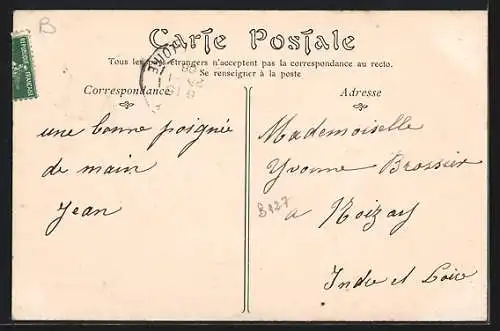 B
Carte Postale
Tous les pays étrangers n'acceptent pas la correspondance au recto.
Se renseigner à la poste
Correspondance
Adresse
une bonne poignée
de main
Jean
Mademoiselle
Yvonne Brossier
à Noizay
Indre et Loire
B127